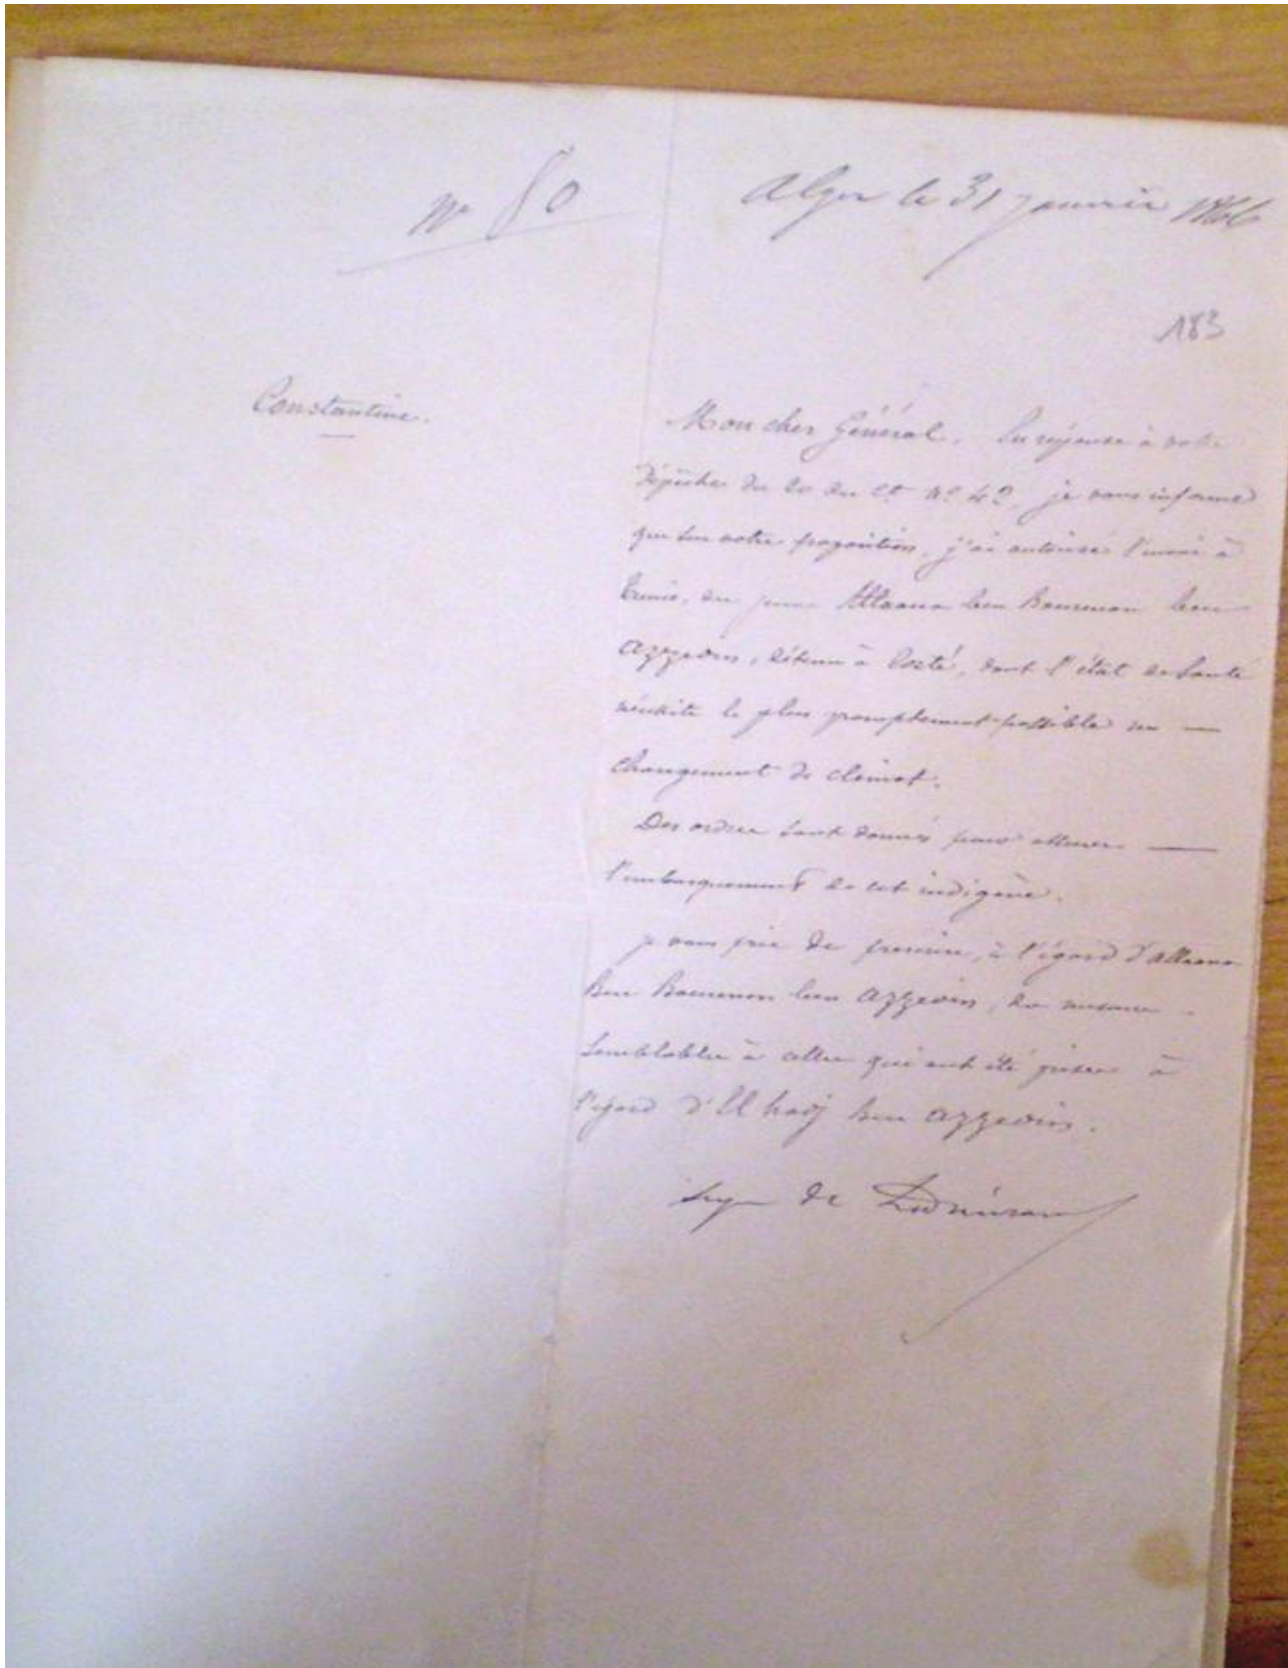 N° 80
Alger le 31 janvier 1866
183
Constantine.
Mon cher Général, En réponse à votre
dépêche du 20 du ct N° 42, je vous informe
que sur votre proposition, j'ai autorisé l'envoi à
Tunis, du ben Bourenan ben
Azzedin, détenu à Corté, dont l'état de santé
nécessite le plus promptement possible un —
changement de climat.
Des ordres sont donnés pour assurer —
l'embarquement de cet indigène.
je vous prie de prescrire, à l'égard d'Allaoua
Ben Bourenan ben Azzedin, des mesures
semblables à celles qui ont été prises à
l'égard d'El hadj ben Azzedin.
de Ladmirault